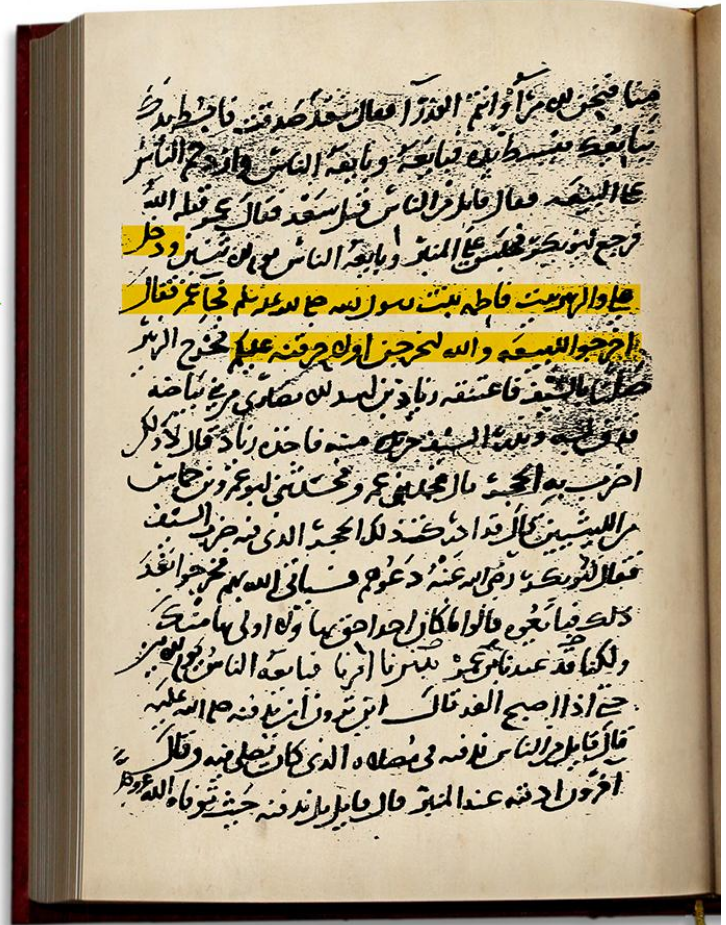 منا فنحن لله مرآ وانتم الوزرآ فقال سعد صدقت فابسط يدك
نبايعك فبسط يده فبايعه وبايعه الناس وازدحم الناس
على البيعه فقال قايل من الناس قتل سعد فقال عمر قتله الله
فرجع ابو بكر فجلس على المنبر وبايعه الناس يوم الاثنين ودخل
على والزبير بيت فاطمه بنت رسول الله صلى الله عليه وسلم فجآ عمر فقال
اخرجوا للبيعه والله لتخرجن اولاحرقنه عليكم فخرج الزبير
صلتا بالسيف فاعتنقه زياد بن لبيد الانصارى من بياضه
فدق به وبدر السيف من يده منه فاخذه زياد قال لا ولكن
اضرب به الحجر قال محمد بن عمر و فحدثنى ابو عمرو بن حماس
من الليثيين قال قد ادركت ذلك الحجر الذى فيه ضرب السيف
فقال ابو بكر رضى الله عنه دعوهم فسياتى الله بهم فخرجوا بعد
ذلك فبايعوه قالوا ما كان احد احق بها ولا اولى بها منك
ولكنا قد عهدنا من عمر يبتزنا امرنا فبايعه الناس يوم الاثنين
حتى اذا اصبح الغد قال اين ترون ان ندفنه صلى الله عليه
قال قايل من الناس ندفنه فى مصلاه الذى كان يصلى فيه وقال
اخرون ادفنه عند المنبر قال قايل بل ندفنه حيث توفاه الله عز وجل